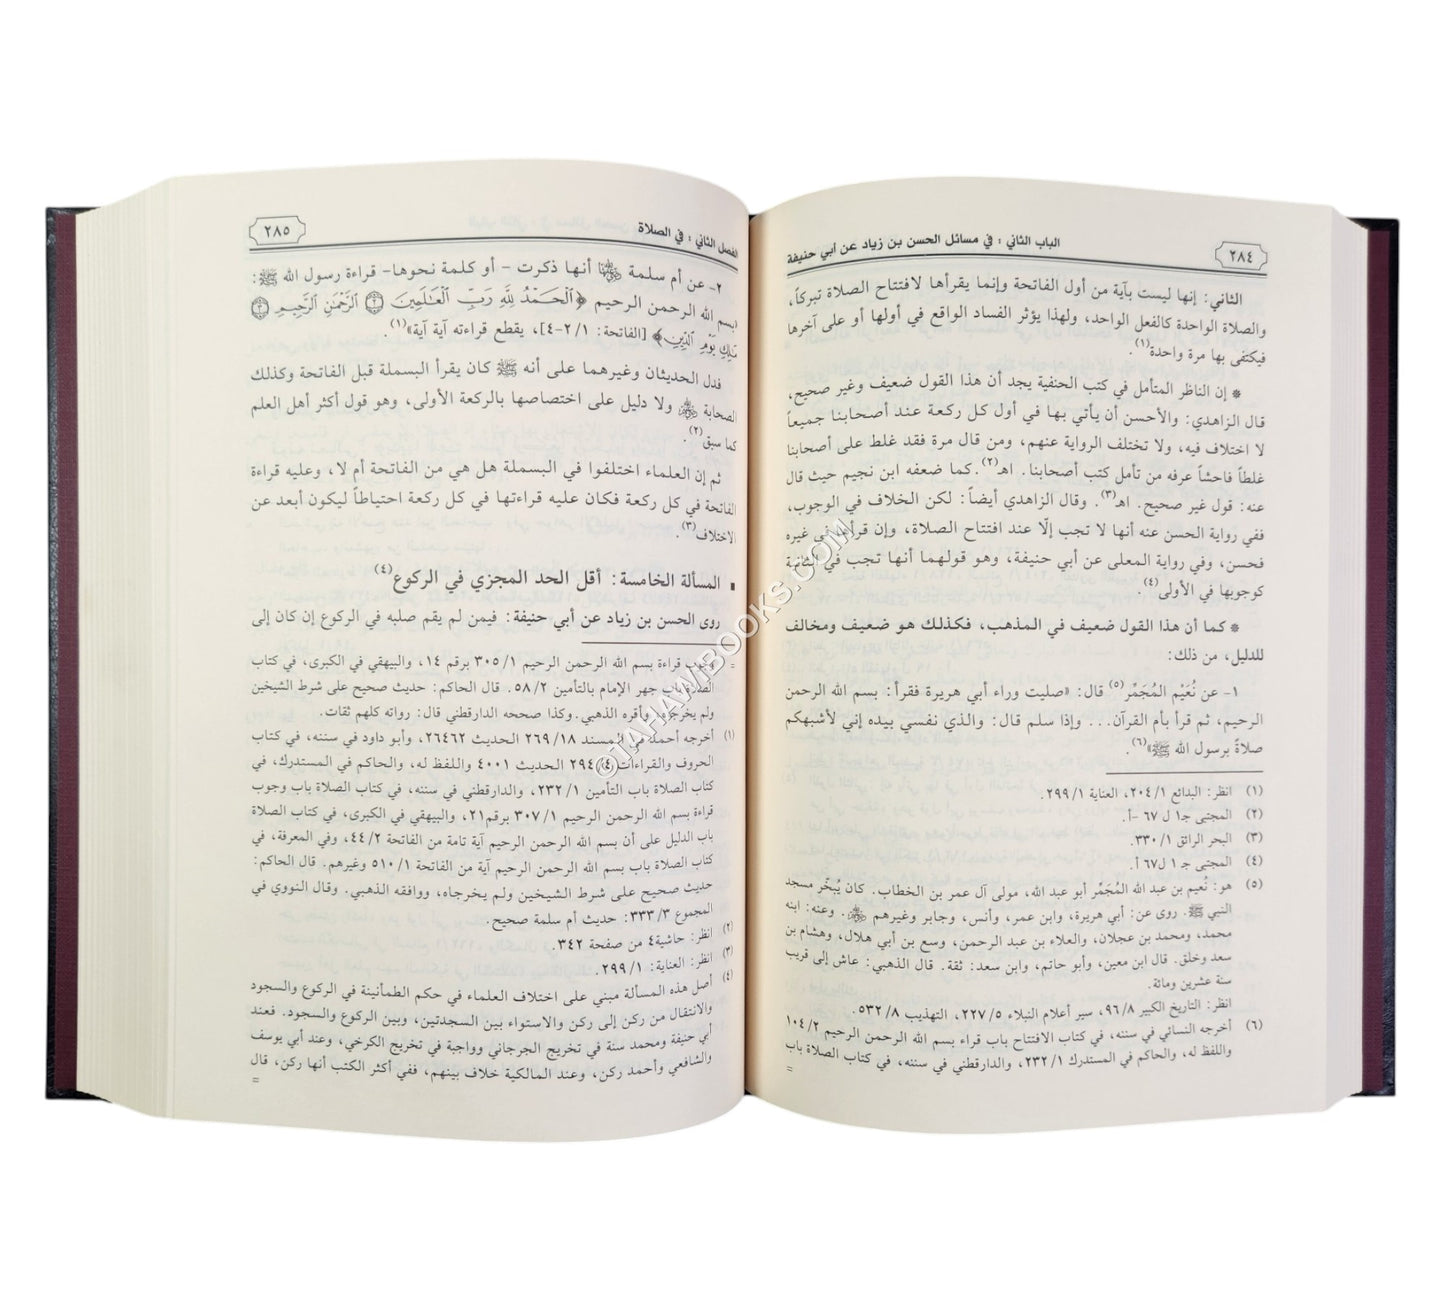 ٢٨٤
الباب الثاني : في مسائل الحسن بن زياد عن أبي حنيفة
الثاني: إنها ليست بآية من أول الفاتحة وإنما يقرأها لافتتاح الصلاة تبركاً،
والصلاة الواحدة كالفعل الواحد، ولهذا يؤثر الفساد الواقع في أولها أو على آخرها
فيكتفى بها مرة واحدة(١).
* إن الناظر المتأمل في كتب الحنفية يجد أن هذا القول ضعيف وغير صحيح،
قال الزاهدي: والأحسن أن يأتي بها في أول كل ركعة عند أصحابنا جميعاً
لا اختلاف فيه، ولا تختلف الرواية عنهم، ومن قال مرة فقد غلط على أصحابنا
غلطاً فاحشاً عرفه من تأمل كتب أصحابنا. اهـ(٢). كما ضعفه ابن نجيم حيث قال
عنه: قول غير صحيح. اهـ(٣). وقال الزاهدي أيضاً: لكن الخلاف في الوجوب،
ففي رواية الحسن عنه أنها لا تجب إلّا عند افتتاح الصلاة، وإن قرأها في غيره
فحسن، وفي رواية المعلى عن أبي حنيفة، وهو قولهما أنها تجب في الثانية
كوجوبها في الأولى(٤).
* كما أن هذا القول ضعيف في المذهب، فكذلك هو ضعيف ومخالف
للدليل، من ذلك:
١- عن نُعَيْم المُجَمِّر(٥) قال: «صليت وراء أبي هريرة فقرأ: بسم الله الرحمن
الرحيم، ثم قرأ بأم القرآن... وإذا سلم قال: والذي نفسي بيده إني لأشبهكم
صلاةً برسول الله ﷺ»(٦).
(١) انظر: البدائع ٢٠٤/١، العناية ٢٩٩/١.
(٢) المجتبى جـ١ ل ٦٧ -أ.
(٣) البحر الرائق ٣٣٠/١.
(٤) المجتبى جـ ١ ل٦٧ أ.
(٥) هو: نُعيم بن عبد الله المُجَمِّر أبو عبد الله، مولى آل عمر بن الخطاب. كان يُبخّر مسجد
النبي ﷺ. روى عن: أبي هريرة، وابن عمر، وأنس، وجابر وغيرهم ﷺ. وعنه: ابنه
محمد، ومحمد بن عجلان، والعلاء بن عبد الرحمن، وسع بن أبي هلال، وهشام بن
سعد وخلق. قال ابن معين، وأبو حاتم، وابن سعد: ثقة. قال الذهبي: عاش إلى قريب
سنة عشرين ومائة.
انظر: التاريخ الكبير ٩٦/٨، سير أعلام النبلاء ٢٢٧/٥، التهذيب ٥٣٢/٨.
(٦) أخرجه النسائي في سننه، في كتاب الافتتاح باب قراء بسم الله الرحمن الرحيم ١٠٤/٢
واللفظ له، والحاكم في المستدرك ٢٣٢/١، والدارقطني في سننه، في كتاب الصلاة باب
=
الفصل الثاني : في الصلاة
٢٨٥
٢- عن أم سلمة أنها ذكرت - أو كلمة نحوها- قراءة رسول الله ﷺ:
«بسم الله الرحمن الرحيم ﴿ٱلۡحَمۡدُ لِلَّهِ رَبِّ ٱلۡعَٰلَمِينَ ٢ ٱلرَّحۡمَٰنِ ٱلرَّحِيمِ ٣
مَٰلِكِ يَوۡمِ ٱلدِّينِ﴾ [الفاتحة: ٢/١-٤]، يقطع قراءته آية آية»(١).
فدل الحديثان وغيرهما على أنه ﷺ كان يقرأ البسملة قبل الفاتحة وكذلك
الصحابة ولا دليل على اختصاصها بالركعة الأولى، وهو قول أكثر أهل العلم
كما سبق(٢).
ثم إن العلماء اختلفوا في البسملة هل هي من الفاتحة أم لا، وعليه قراءة
الفاتحة في كل ركعة فكان عليه قراءتها في كل ركعة احتياطاً ليكون أبعد عن
الاختلاف(٣).
▪ المسألة الخامسة: أقل الحد المجزي في الركوع(٤)
روى الحسن بن زياد عن أبي حنيفة: فيمن لم يقم صلبه في الركوع إن كان إلى
= وجوب قراءة بسم الله الرحمن الرحيم ٣٠٥/١ برقم ١٤، والبيهقي في الكبرى، في كتاب
الصلاة باب جهر الإمام بالتأمين ٥٨/٢. قال الحاكم: حديث صحيح على شرط الشيخين
ولم يخرجاه، وأقره الذهبي. وكذا صححه الدارقطني قال: رواته كلهم ثقات.
(١) أخرجه أحمد في المسند ٢٦٩/١٨ الحديث ٢٦٤٦٢، وأبو داود في سننه، في كتاب
الحروف والقراءات(٤) ٢٩٤ الحديث ٤٠٠١ واللفظ له، والحاكم في المستدرك، في
كتاب الصلاة باب التأمين ٢٣٢/١، والدارقطني في سننه، في كتاب الصلاة باب وجوب
قراءة بسم الله الرحمن الرحيم ٣٠٧/١ برقم٢١، والبيهقي في الكبرى، في كتاب الصلاة
باب الدليل على أن بسم الله الرحمن الرحيم آية تامة من الفاتحة ٤٤/٢، وفي المعرفة، في
كتاب الصلاة باب بسم الله الرحمن الرحيم آية من الفاتحة ٥١٠/١ وغيرهم. قال الحاكم:
حديث صحيح على شرط الشيخين ولم يخرجاه، ووافقه الذهبي. وقال النووي في
المجموع ٣٣٣/٣: حديث أم سلمة صحيح.
(٢) انظر: حاشية٤ من صفحة ٣٤٢.
(٣) انظر: العناية: ٢٩٩/١.
(٤) أصل هذه المسألة مبني على اختلاف العلماء في حكم الطمأنينة في الركوع والسجود
والانتقال من ركن إلى ركن والاستواء بين السجدتين، وبين الركوع والسجود. فعند
أبي حنيفة ومحمد سنة في تخريج الجرجاني وواجبة في تخريج الكرخي، وعند أبي يوسف
والشافعي وأحمد ركن، وعند المالكية خلاف بينهم، ففي أكثر الكتب أنها ركن، قال
=
©JAHAWIBOOKS.COM